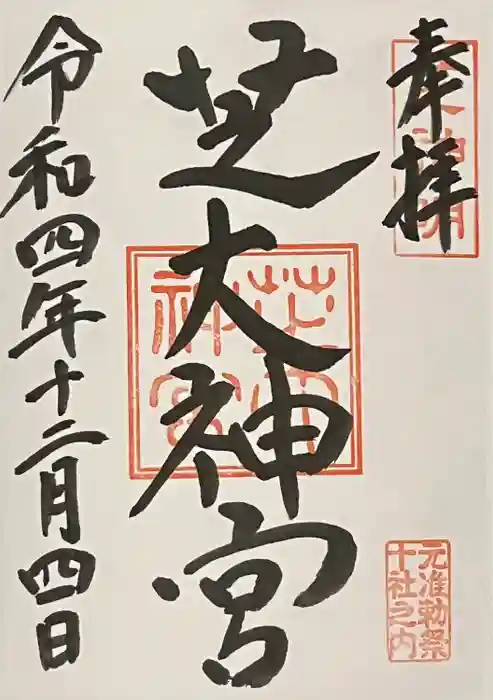 奉拝
芝大神宮
令和四年十二月四日
芝大
神宮
元准勅祭
十社之内